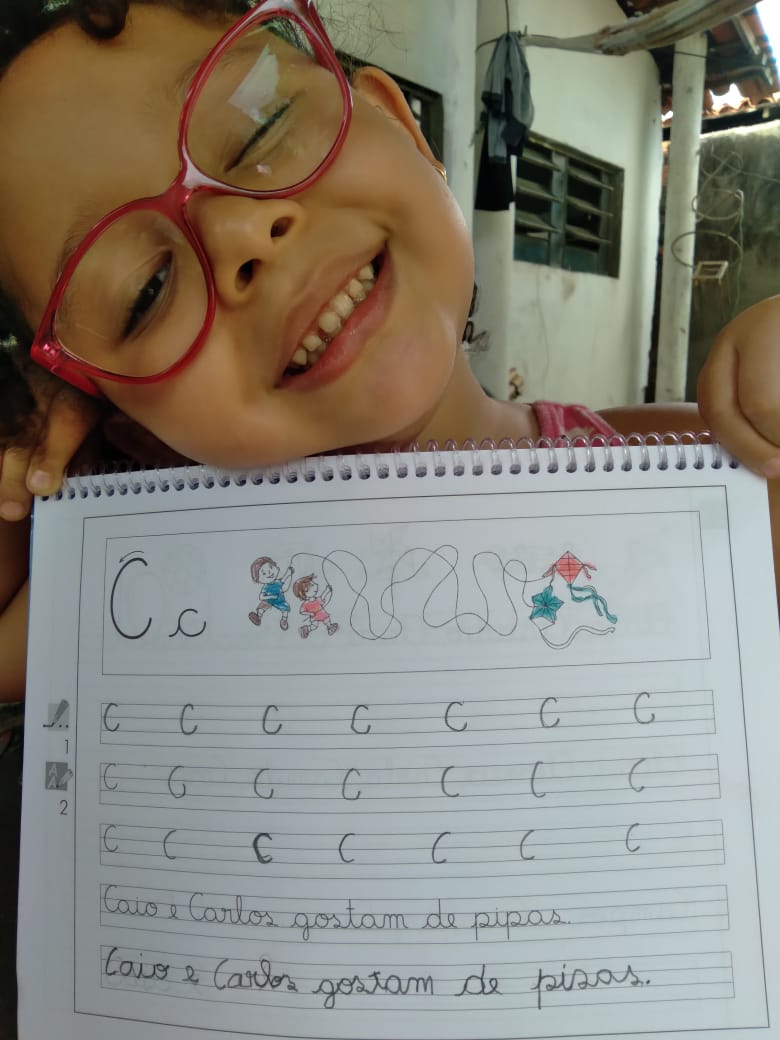 C c
C C C C C C C
1
C C C C C C C
2
C C C C C C C
Caio e Carlos gostam de pipas.
Caio e Carlos gostam de pisas.